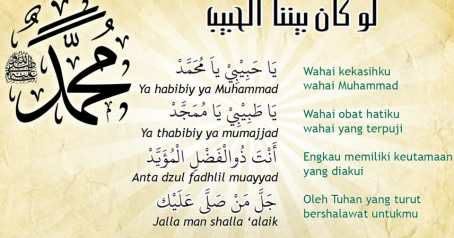 لو كان بيننا الحبيب
محمد
ﷺ
يَا حَبِيْبِيْ يَا مُحَمَّدْ
Ya habibiy ya Muhammad
Wahai kekasihku
wahai Muhammad
يَا طَبِيْبِيْ يَا مُمَجَّدْ
Ya thabibiy ya mumajjad
Wahai obat hatiku
wahai yang terpuji
أَنْتَ ذُوالْفَضْلِ الْمُؤَيَّدْ
Anta dzul fadhlil muayyad
Engkau memiliki keutamaan
yang diakui
جَلَّ مَنْ صَلَّى عَلَيْكَ
Jalla man shalla ‘alaik
Oleh Tuhan yang turut
bershalawat untukmu